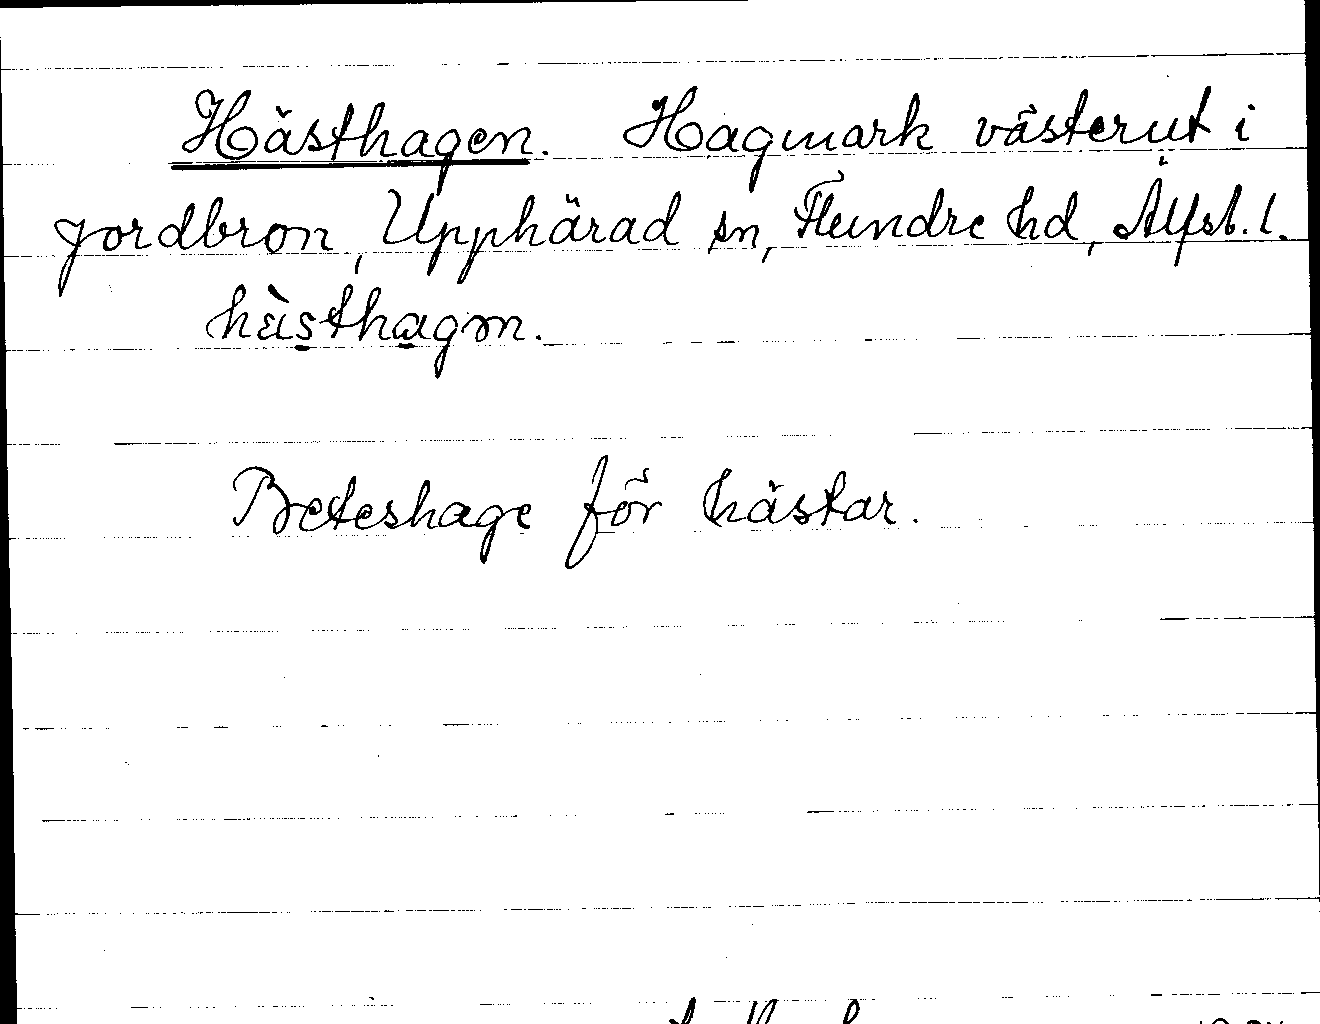 Hästhagen. Hagmark västerut i
jordbron, Upphärad sn, Flundre hd, Älfsb. l.
hàsthagɷn.
Beteshage för hästar.